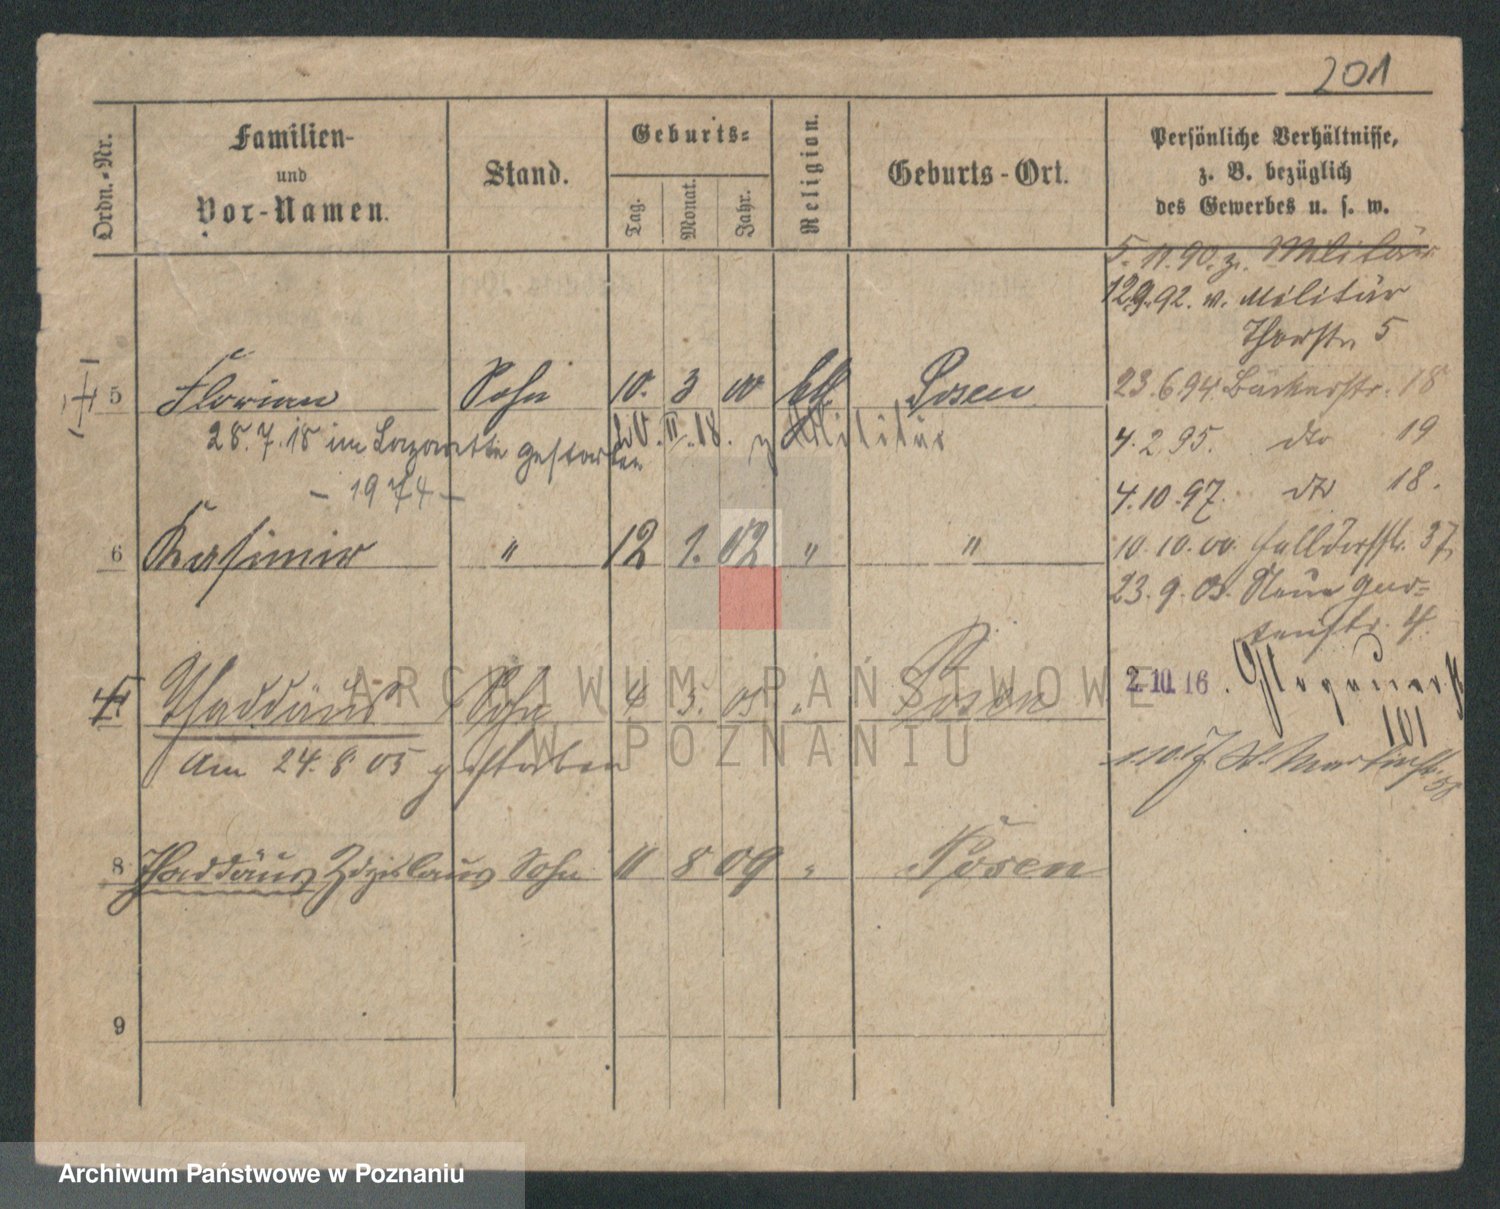 201
Ordn.-Nr.
Familien-
und
Vor-Namen.
Stand.
Geburts-
Tag.
Monat.
Jahr.
Religion.
Geburts-Ort.
Persönliche Verhältnisse,
z. B. bezüglich
des Gewerbes u. s. w.
5. 11. 90. z. Militär
12.9.92. v. Militär
Thorstr. 5
5 Florian Sohn 10. 3 00 kth Posen
23.6.94. Bäckerstr. 18
28.7.18 im Lazarette gestorben 20. II. 18. z Militär
4.2.95. dto 19
- 1974 -
4.10.97. dto 18.
6 Kasimir " 12 1. 02 " "
10.10.00. Halldorfstr. 37,
23.9.03. Neue Gar-
tenstr. 4.
Thaddäus Sohn 4 5. 05 " Posen
2.10.16. Glogauerstr
101
am 24.8.05 gestorben
St. Martinstr. 58
8 Thaddäus Zdzislaus Sohn 11 8 09 " Posen
9
ARCHIWUM PAŃSTWOWE
W POZNANIU
Archiwum Państwowe w Poznaniu